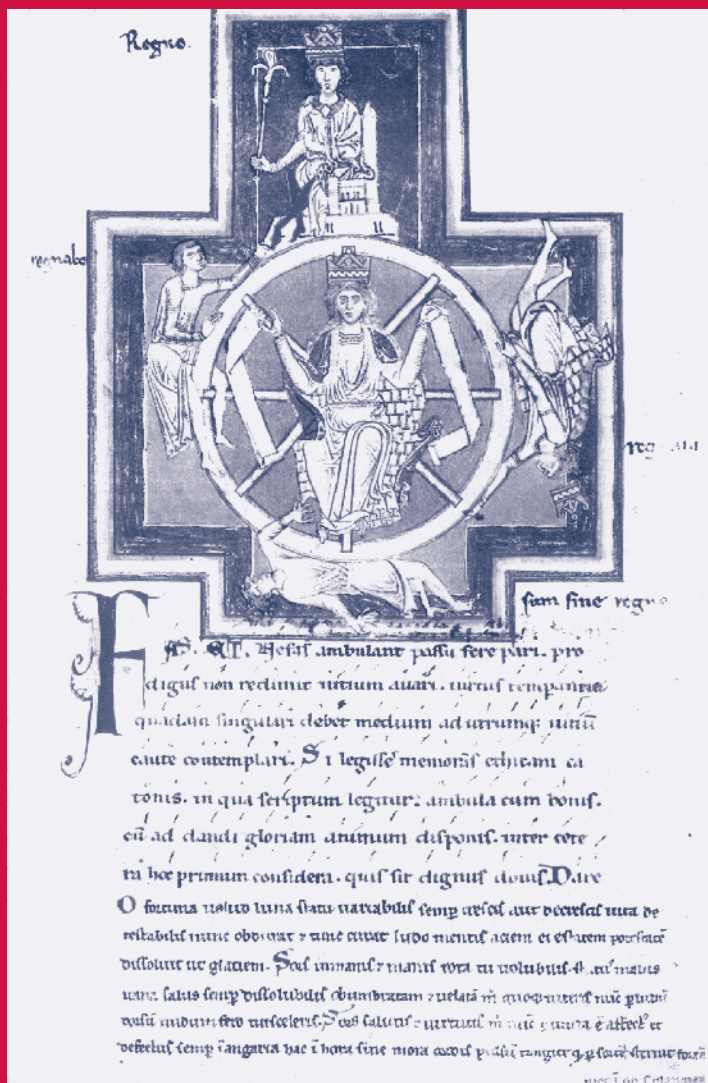 Regno.
regnabo
regnaui
sum sine regno
FAS. ET. Nefas ambulant passu fere pari. pro
digus non redimit uitium auari. uirtus temperantia
quadam singulari debet medium ad utrumq; uitiũ
caute contemplari. Si legisse memoras ethicam ca
tonis. in qua scriptum legitur: ambula cum bonis.
cũ ad dandi gloriam animum disponis. inter cete
ra hoc primum considera. quis sit dignus donis. Dare
O fortuna uelud luna statu uariabilis semp crescis aut decrescis uita de
testabilis nunc obdurat ⁊ tunc curat ludo mentis aciem egestatem potestatẽ
dissoluit ut glaciem. Sors inmanis ⁊ inanis rota tu uolubilis status malus
uana salus semp dissolubilis obumbratam ⁊ uelatã m quoq; niteris nũc p ludũ
dorsũ nudum fero tui sceleris. Sors salutis ⁊ uirtutis m nũc
defectus semp ĩ angaria hac ĩ hora sine mora cordis pulsũ tangite